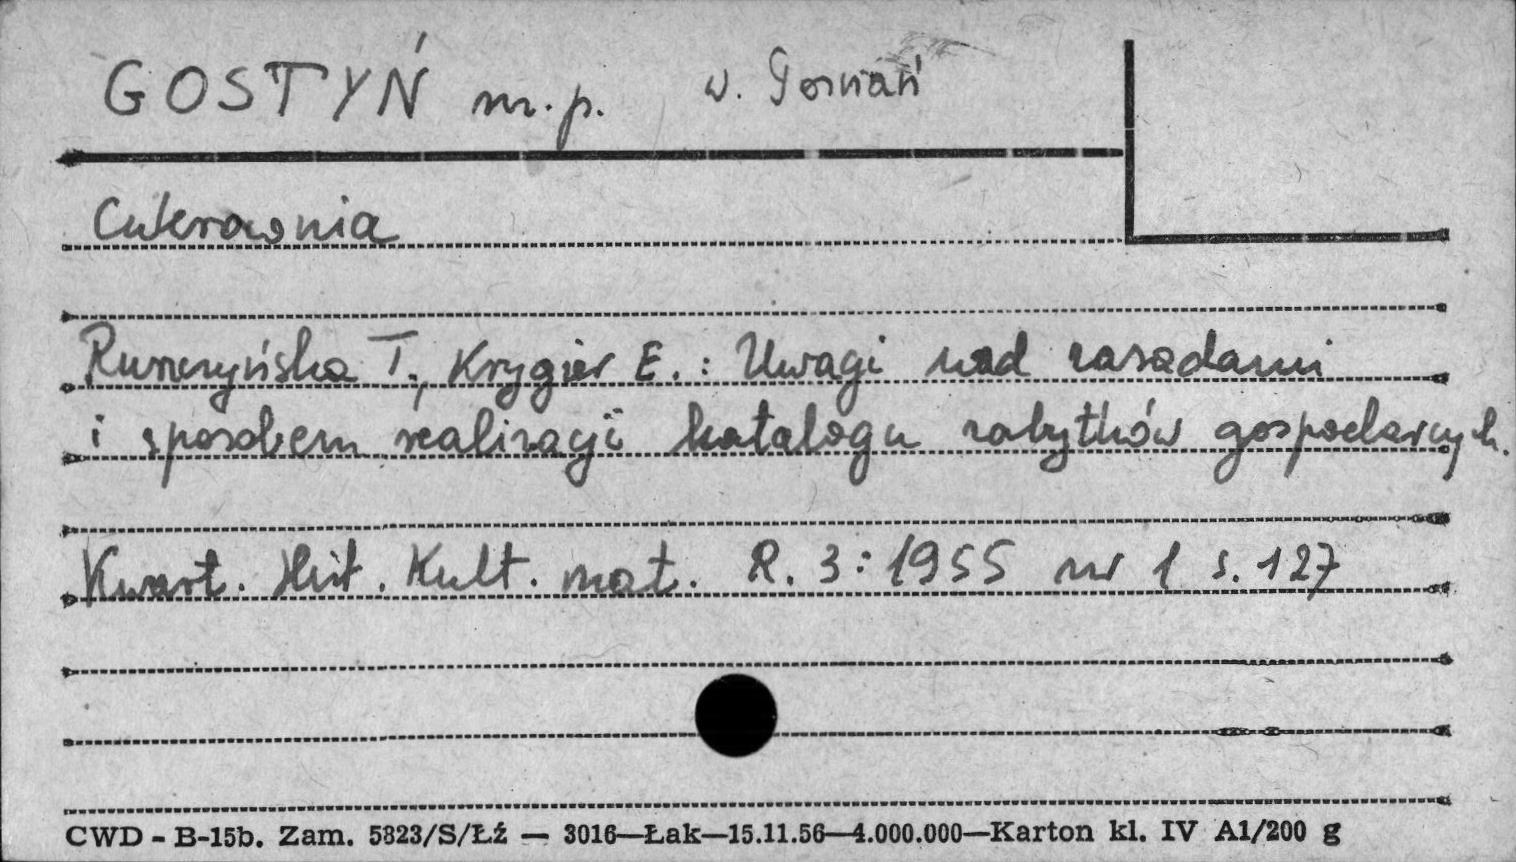 GOSTYŃ m.p. w. Poznań
Cukrownia
Ruszczyńska T., Krygier E.: Uwagi nad zasadami
i sposobem realizacji katalogu zabytków gospodarczych.
Kwart. Hist. Kult. mat. R. 3: 1955 nr 1 s. 127
CWD - B-15b. Zam. 5823/S/Łź — 3016—Łak—15.11.56—4.000.000—Karton kl. IV A1/200 g